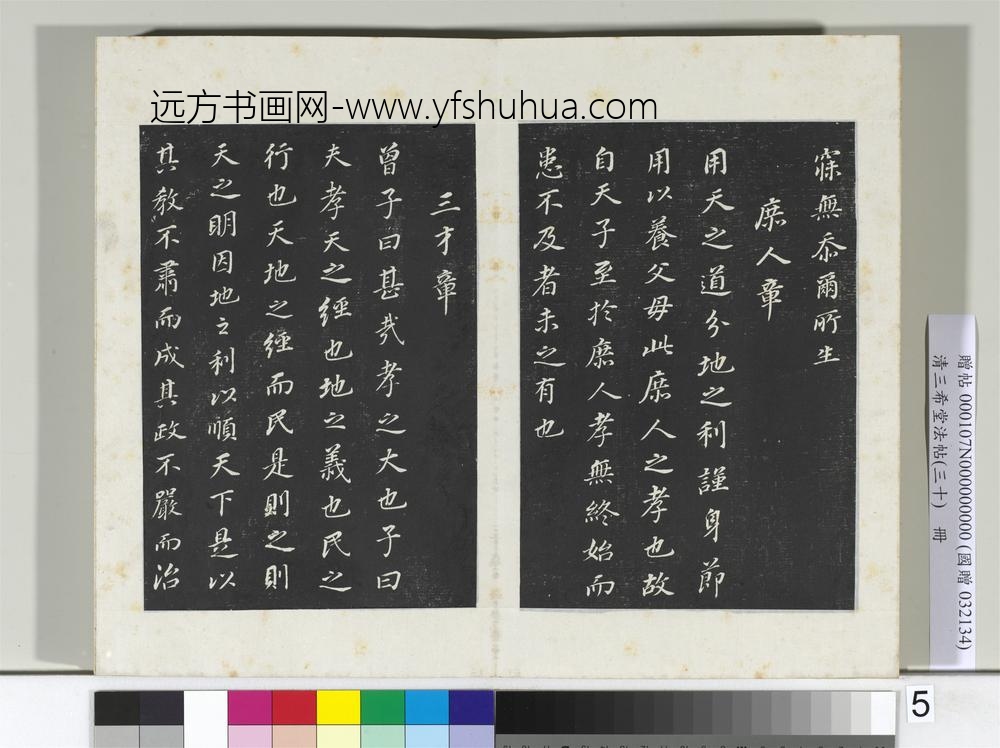 远方书画网-www.yfshuhua.com
寐無忝爾所生
庶人章
用天之道分地之利謹身節
用以養父母此庶人之孝也故
自天子至於庶人孝無終始而
患不及者未之有也
三才章
曾子曰甚哉孝之大也子曰
夫孝天之經也地之義也民之
行也天地之經而民是則之則
天之明因地之利以順天下是以
其教不肅而成其政不嚴而治
贈帖 000107N000000000 (國贈 032134)
清三希堂法帖(三十) 冊
5